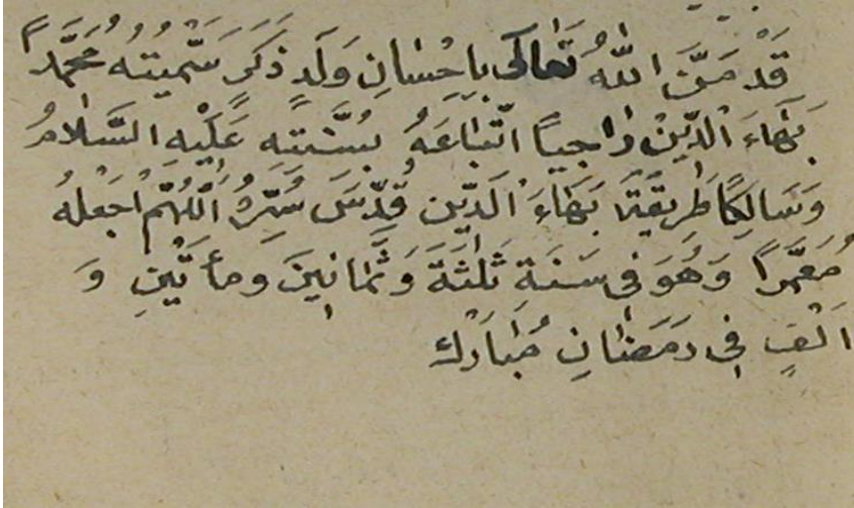 قَدْ مَنَّ اللّٰهُ تَعَالَى بِاِحْسَانِ وَلَدٍ ذَكَرٍ سَمَّيْتُهُ مُحَمَّدً
بَهَاءَ الدِّيْنْ رَاجِيًا اتِّبَاعَهُ بِسُنَّتِهِ عَلَيْهِ السَّلَامُ
وَسَالِكًا طَرِيقَةَ بَهَاءَ الدِّين قُدِّسَ سِّرُهُ اَللّٰهُمَّ اجْعَلْهُ
مُعَمَّرًا وَهُوَ فِي سَنَةِ ثَلٰثَةَ وَثَمَانِينَ ومأتَيْنِ وَ
اَلْفٍ فِي رَمَضَانِ مُبَارَك